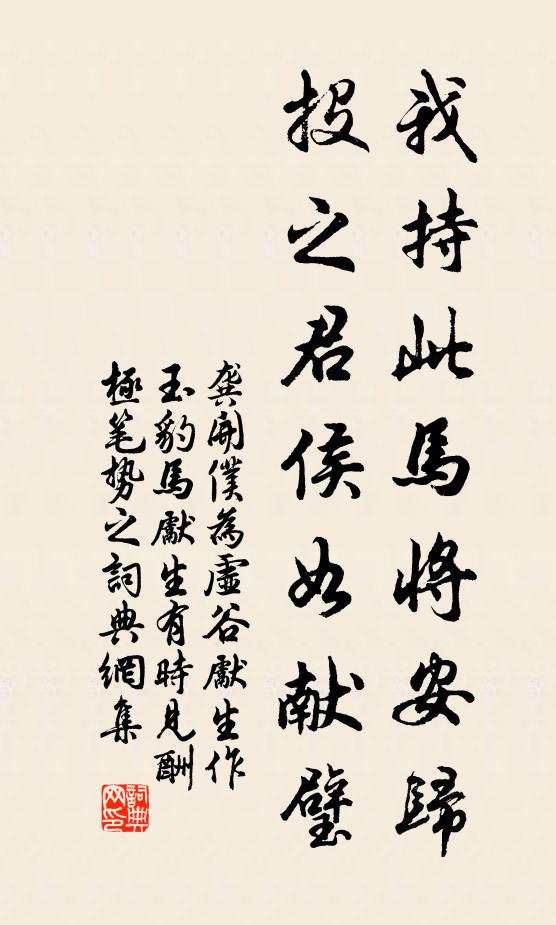 我持此馬將安歸
投之君侯如献璧
龔開僕為虛谷獻生作
玉豹馬獻生有時見酬
極笔势之詞典網集
詞典网印